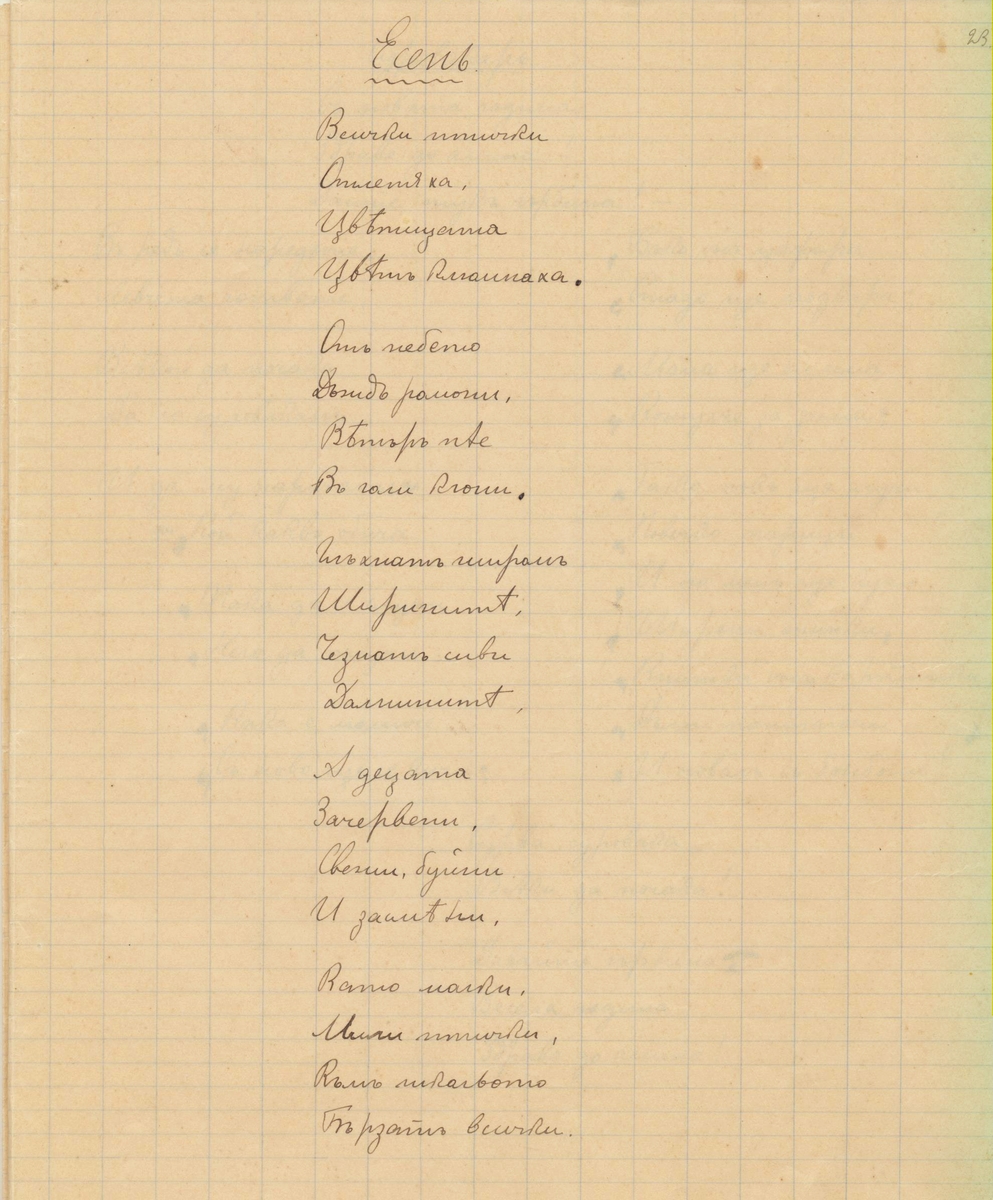 23
Есень.
Всички птички
Отлетяха,
Цвѣтицата
Цвѣтъ клонпаха.
Отъ небето
Дъждъ ромони,
Вѣтъръ пѣе
Въ голи клони.
Глъхнатъ широмъ
Ширинитѣ,
Чезнатъ сиви
Далнинитѣ,
А децата
Зачервени,
Свежи, буйни
И засмѣни,
Като малки,
Мили птички,
Къмъ школьото
Бързатъ всички.